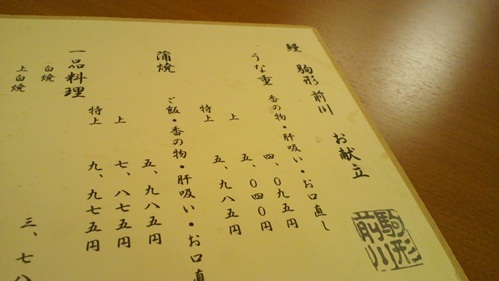 鰻 駒形 前川 お献立
うな重 香の物・肝吸い・お口直し
四、〇九五円
上 五、〇四〇円
特上 五、九八五円
蒲焼 ご飯・香の物・肝吸い・お口直
五、九八五円
上 七、八七五円
特上 九、九七五円
一品料理
白焼 三、七八
上白焼
駒形
前川